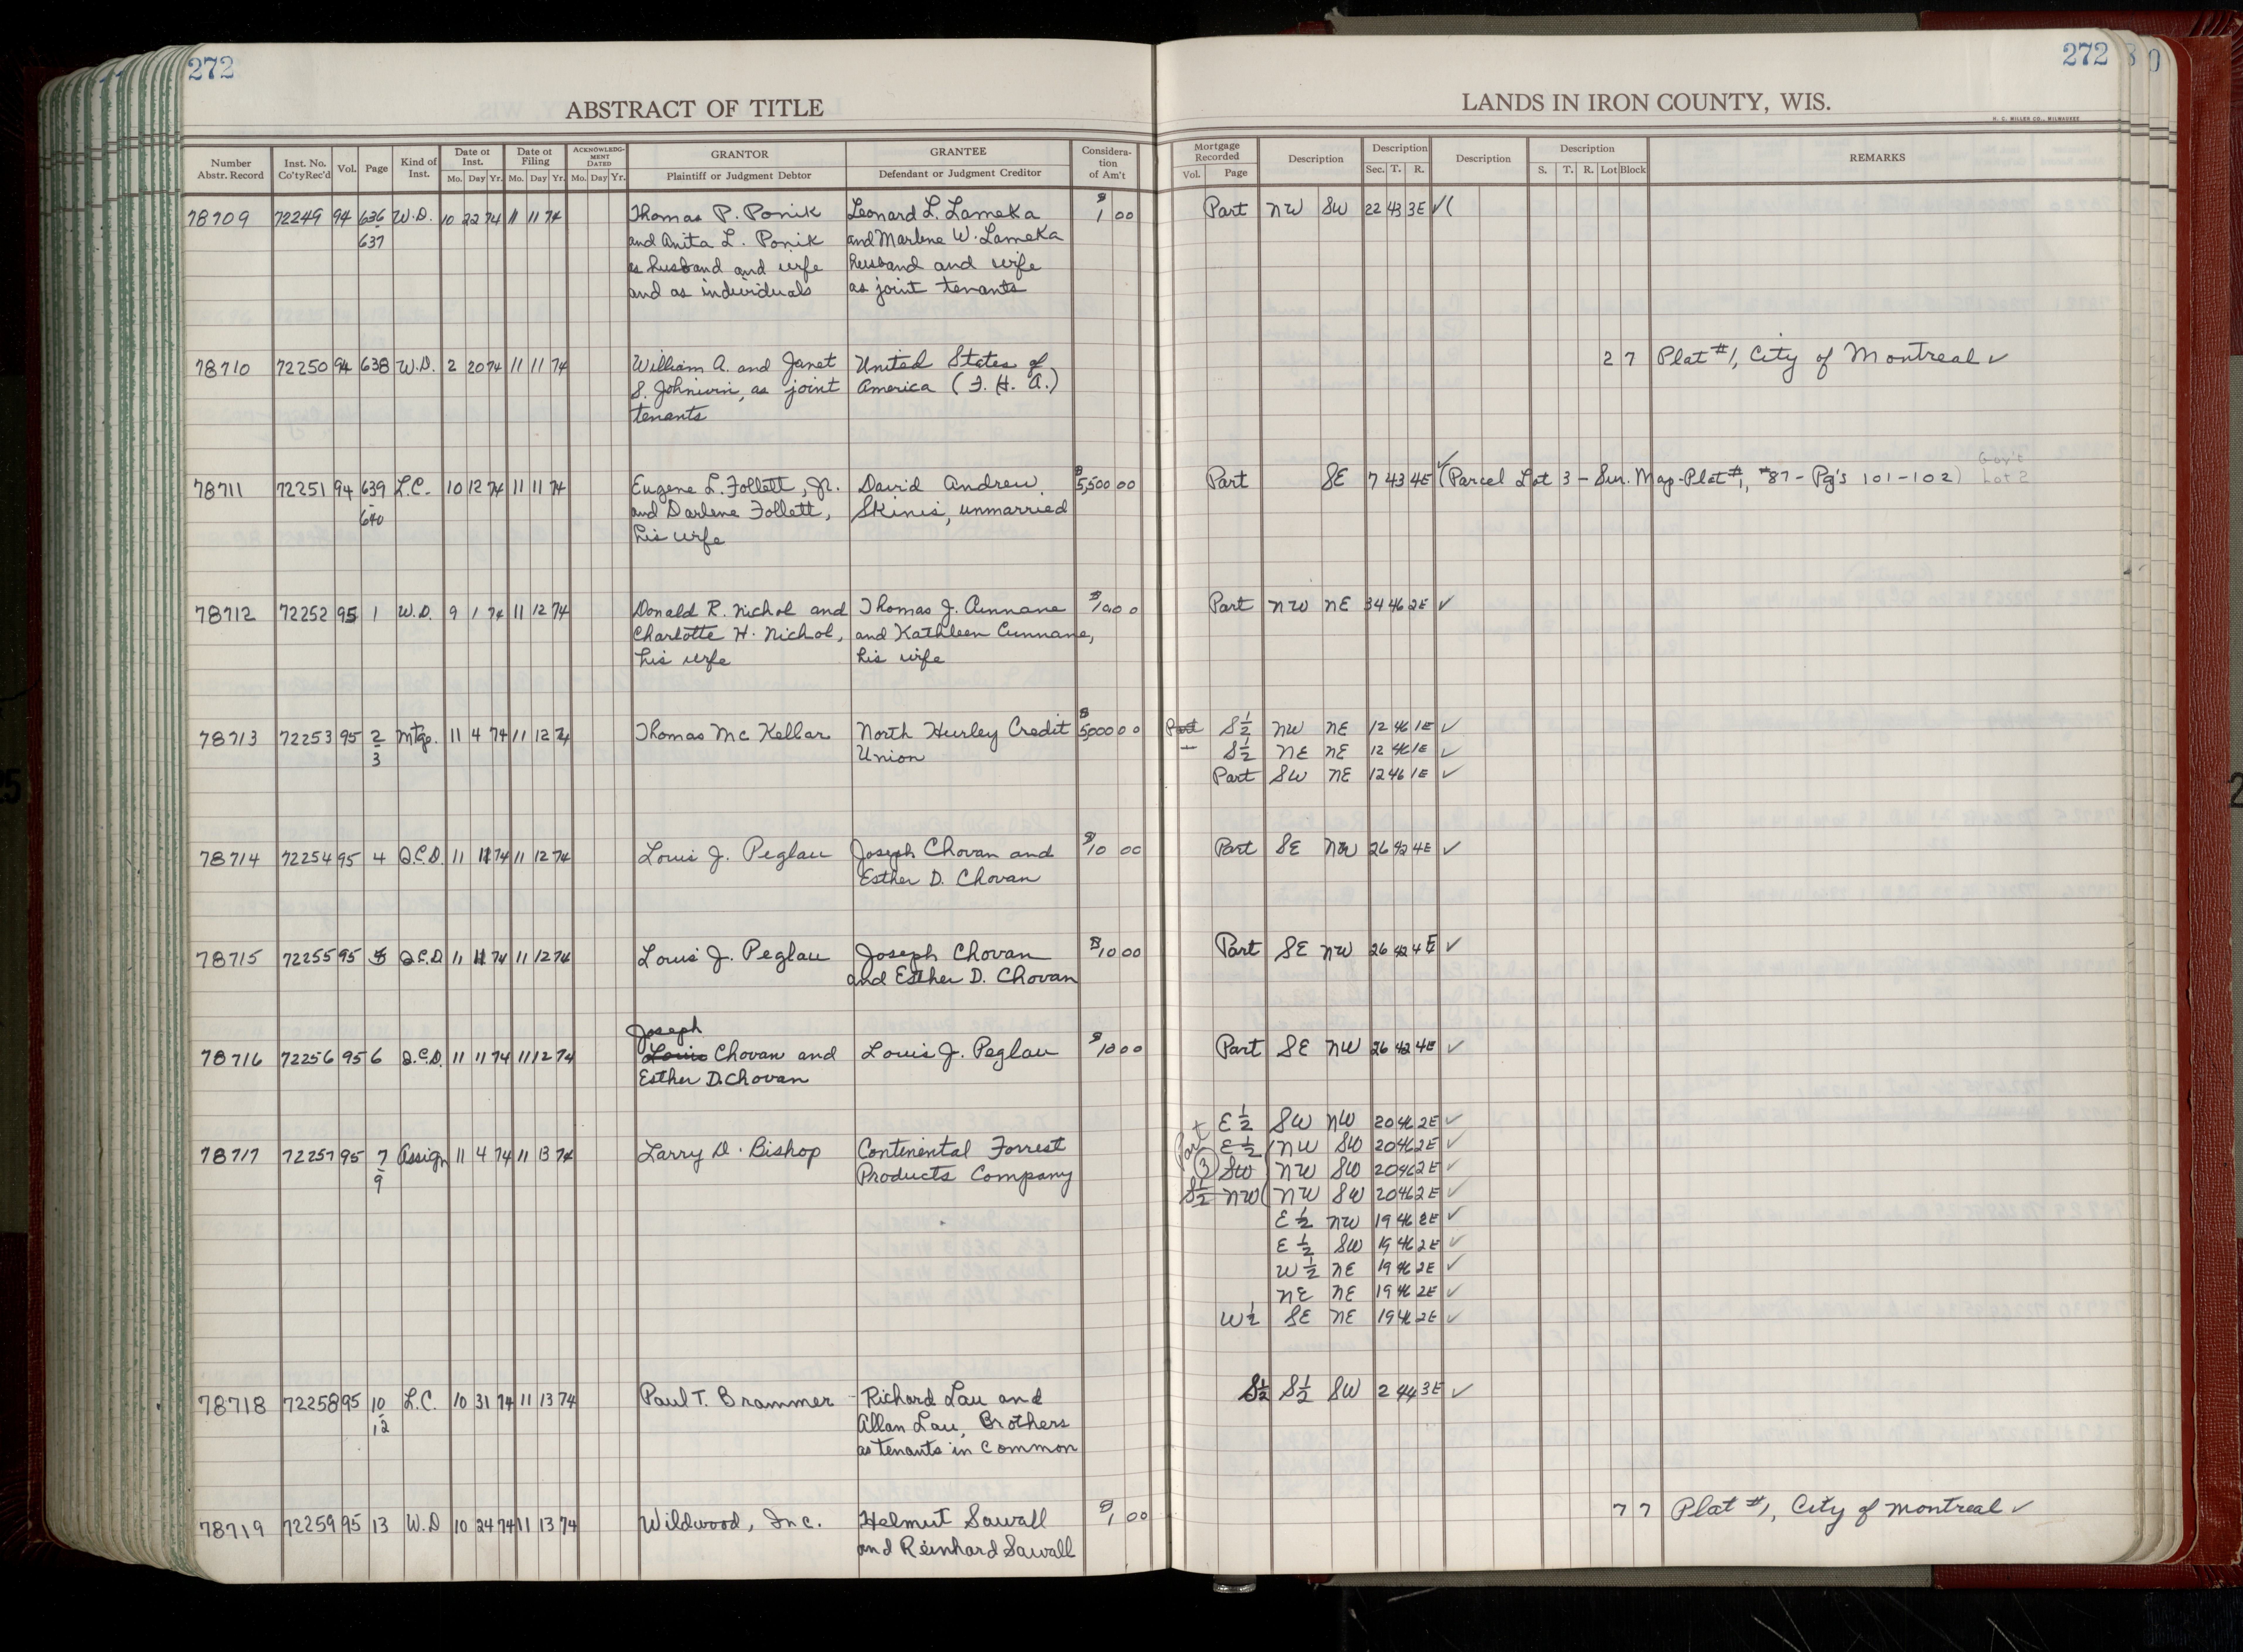 272
ABSTRACT OF TITLE
Number Abstr. Record Inst. No. Co'tyRec'd Vol. Page Kind of Inst. Date of Inst. Mo. Day Yr. Date of Filing Mo. Day Yr. ACKNOWLEDG-MENT DATED Mo. Day Yr. GRANTOR Plaintiff or Judgment Debtor GRANTEE Defendant or Judgment Creditor Considera-tion of Am't
78709 72249 94 636 W.D. 10 22 74 11 11 74 Thomas P. Ponik Leonard L. Lameka $1 00
637 and Anita L. Ponik and Marlene W. Lameka
as husband and wife husband and wife
and as individuals as joint tenants
78710 72250 94 638 W.D. 2 20 74 11 11 74 William A. and Janet United States of
S. Johnivin, as joint America (F. H. A.)
tenants
78711 72251 94 639 L.C. 10 12 74 11 11 74 Eugene L. Follett, Jr. David Andrew $5,500 00
640 and Darlene Follett, Skinis, unmarried
his wife
78712 72252 95 1 W.D. 9 1 74 11 12 74 Donald R. Nichol and Thomas J. Cunnane $1 00
Charlotte H. Nichol, and Kathleen Cunnane,
his wife his wife
78713 72253 95 2 Mtge. 11 4 74 11 12 74 Thomas Mc Kellar North Hurley Credit $5000 00
3 Union
78714 72254 95 4 Q.C.D. 11 11 74 11 12 74 Louis J. Peglau Joseph Chovan and $10 00
Esther D. Chovan
78715 72255 95 5 Q.C.D 11 11 74 11 12 74 Louis J. Peglau Joseph Chovan $10 00
and Esther D. Chovan
Joseph
78716 72256 95 6 Q.C.D. 11 11 74 11 12 74 Louis Chovan and Louis J. Peglau $10 00
Esther D. Chovan
78717 72257 95 7 Assign 11 4 74 11 13 74 Larry D. Bishop Continental Forrest
9 Products Company
78718 72258 95 10 L.C. 10 31 74 11 13 74 Paul T. Brammer Richard Lau and
12 Allan Lau, Brothers
as tenants in common
78719 72259 95 13 W.D 10 24 74 11 13 74 Wildwood, Inc. Helmut Sawall $1 00
and Reinhard Sawall
272
LANDS IN IRON COUNTY, WIS.
H. C. MILLER CO., MILWAUKEE
Mortgage Recorded Vol. Page Description Description Sec. T. R. Description Description S. T. R. Lot Block REMARKS
Part NW SW 22 43 3E ✓(
2 7 Plat #1, City of Montreal ✓
Part SE 7 43 4E ✓ (Parcel Lot 3 - Sur. Map-Plat #1, #87 - Pg's 101-102) Gov't
Lot 2
Part NW NE 34 46 2E ✓
Part S½ NW NE 12 46 1E ✓
S½ NE NE 12 46 1E ✓
Part SW NE 12 46 1E ✓
Part SE NW 26 42 4E ✓
Part SE NW 26 42 4E ✓
Part SE NW 26 42 4E ✓
E½ SW NW 20 46 2E ✓
Part E½ (NW SW 20 46 2E ✓
(3) SW (NW SW 20 46 2E ✓
S½ NW( NW SW 20 46 2E ✓
E½ NW 19 46 2E ✓
E½ SW 19 46 2E ✓
W½ NE 19 46 2E ✓
NE NE 19 46 2E ✓
W½ SE NE 19 46 2E ✓
S½ S½ SW 2 44 3E ✓
7 7 Plat #1, City of Montreal ✓